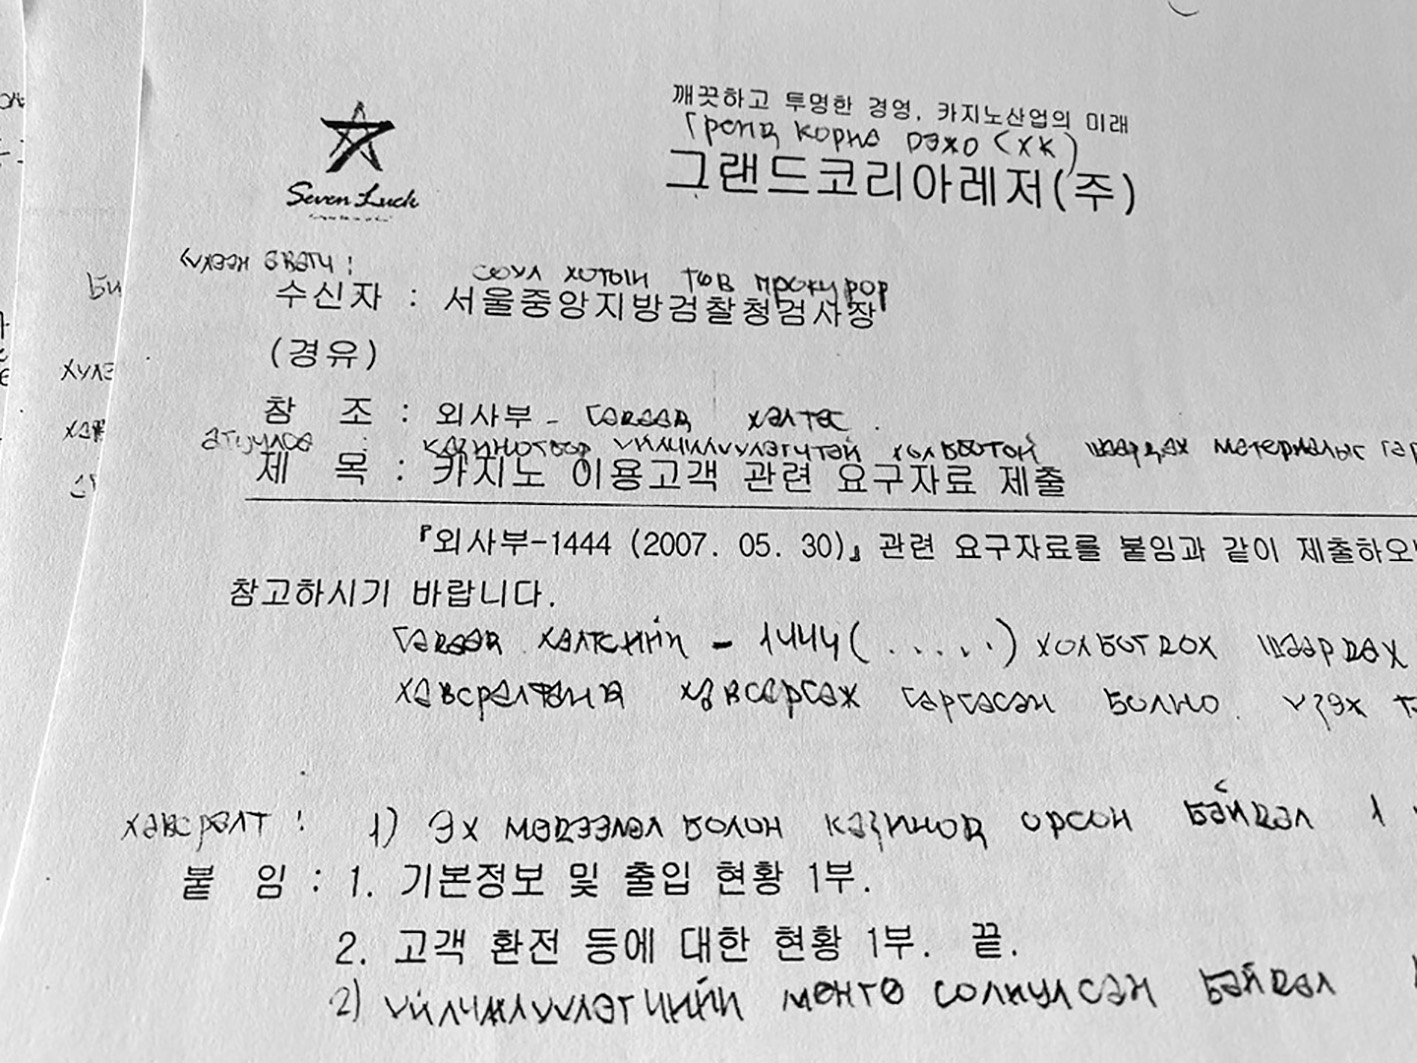 깨끗하고 투명한 경영, 카지노산업의 미래
Гренд корпа рэжо (ХК)
그랜드코리아레저(주)
Seven Luck
хүлээн авагч :
сөүл хотын төв прокурор
수신자 : 서울중앙지방검찰청검사장
(경유)
참 조 : 외사부 - гадаад хэлтэс .
казинотоор үйлчлүүлэгчтэй холбоотой шаардах материалыг гар
제 목 : 카지노 이용고객 관련 요구자료 제출
『외사부-1444 (2007. 05. 30)』 관련 요구자료를 붙임과 같이 제출하오
참고하시기 바랍니다.
гадаад хэлтсийн - 1444 ( . . . . . ) холбогдох шаардах
хавсралтанд хавсаргаж гаргасан болно. үзэх
хавсралт : 1) Эх мэдээлэл болон казинод орсон байдал 1
붙 임 : 1. 기본정보 및 출입 현황 1부.
2. 고객 환전 등에 대한 현황 1부. 끝.
2) үйлчлүүлэгчийн мөнгө солиулсан байдал
Би
хүлэ